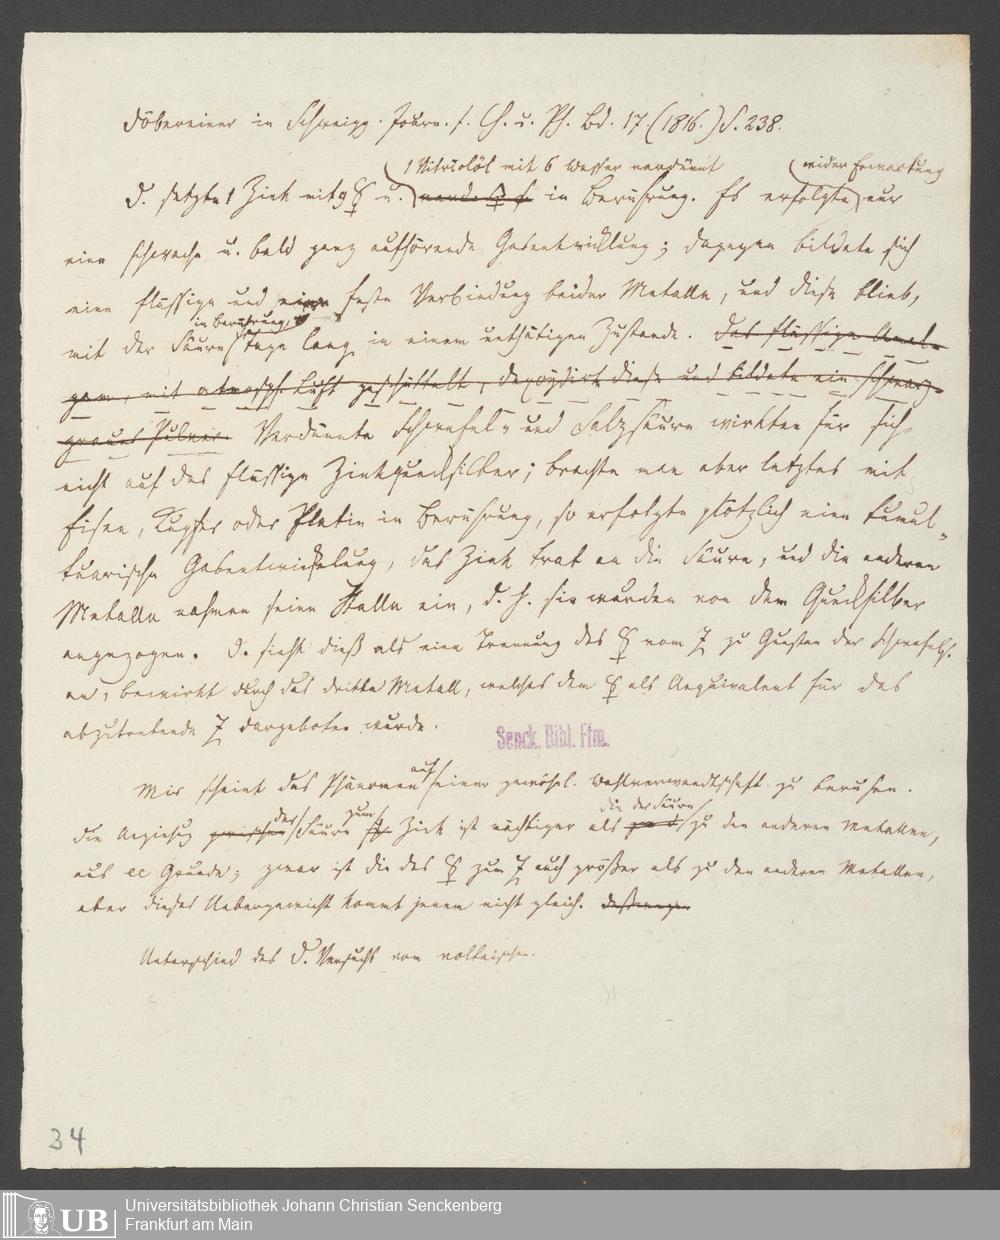 Döbereiner in Schweigg. Journ. f. Ch. u. Ph. Bd. 17 (1816.) S. 238.
1 Vitriolöl mit 6 Wasser verdünnt
wider Erwartung
D. setzte 1 Zink mit 9 ☿ u. in Berührung. Es erfolgte nur
eine schwache u. bald ganz aufhörende Gasentwicklung; dagegen bildete sich
eine flüssige und eine feste Verbindung beider Metalle, und diese blieb,
in Berührung,
mit der Säure Tage lang in einem unthätigen Zustande. Das flüssige Amal-
gam, mit atmosph. Luft geschüttelt, desoxydirt diese und bildete ein schwarz-
graues Pulver. Verdünnte Schwefel- und Salzsäure wirkten für sich
nicht auf das flüssige Zinkquecksilber; brachte man aber letztes mit
Eisen, Kupfer oder Platin in Berührung, so erfolgte plötzlich eine tumul-
tuarische Gasentwickelung, das Zink trat an die Säure, und die anderen
Metalle nahmen seine Stelle ein, d. h. sie wurden von dem Quecksilber
angezogen. D. sieht dieß als eine Trennung des ☿ vom Z zu Gunsten der Schwefels.
an, bewirkt durch das dritte Metall, welches dem ☿ als Aequivalent für das
abzutretende Z dargeboten wurde.
Senck. Bibl. Ffm.
auf
Mir scheint das Phänomen einer gewöhnl. Wahlverwandtschaft zu beruhen.
der zum die der Säure
Die Anziehg zwischen Säure Zink ist mächtiger als zu den anderen Metallen,
aus Grunde; zwar ist die des ☿ zum Z auch größer als zu den anderen Metallen,
aber dieses Uebergewicht kommt jenem nicht gleich. deßwegen
Unterschied des D. Versuchs vom voltaischen.
34
UB
Universitätsbibliothek Johann Christian Senckenberg
Frankfurt am Main